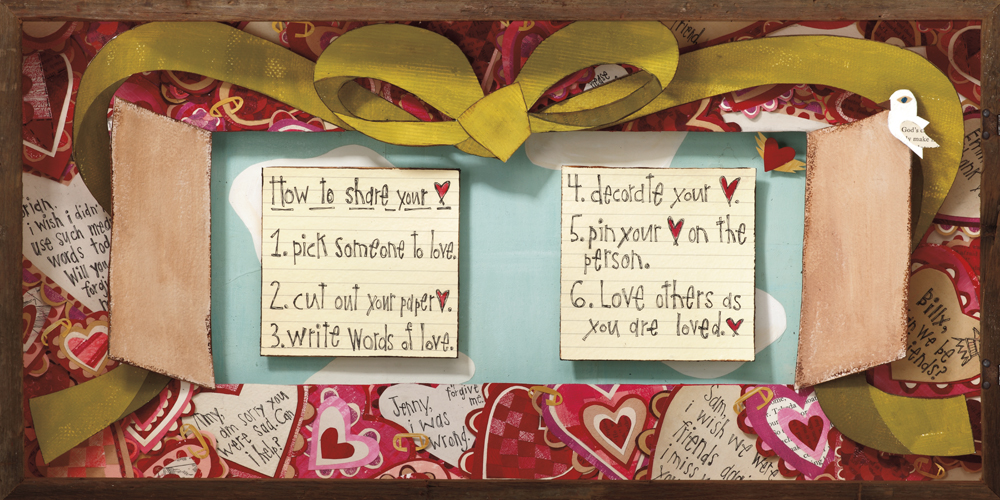 How to share your
1. pick someone to love.
2. cut out your paper
3. write words of love.
4. decorate your
5. pin your on the
person.
6. Love others as
you are loved.
friend,
please
God's c
ly make
Brian,
i wish i didn'
use such mea
words tod
Will you
forgi
Amy,
am sorry you
were sad. Can
i help
Jenny,
i was
wrong.
forgive
me!
Sam,
i wish we were
friends again
i miss
Billy,
n we be
iends?